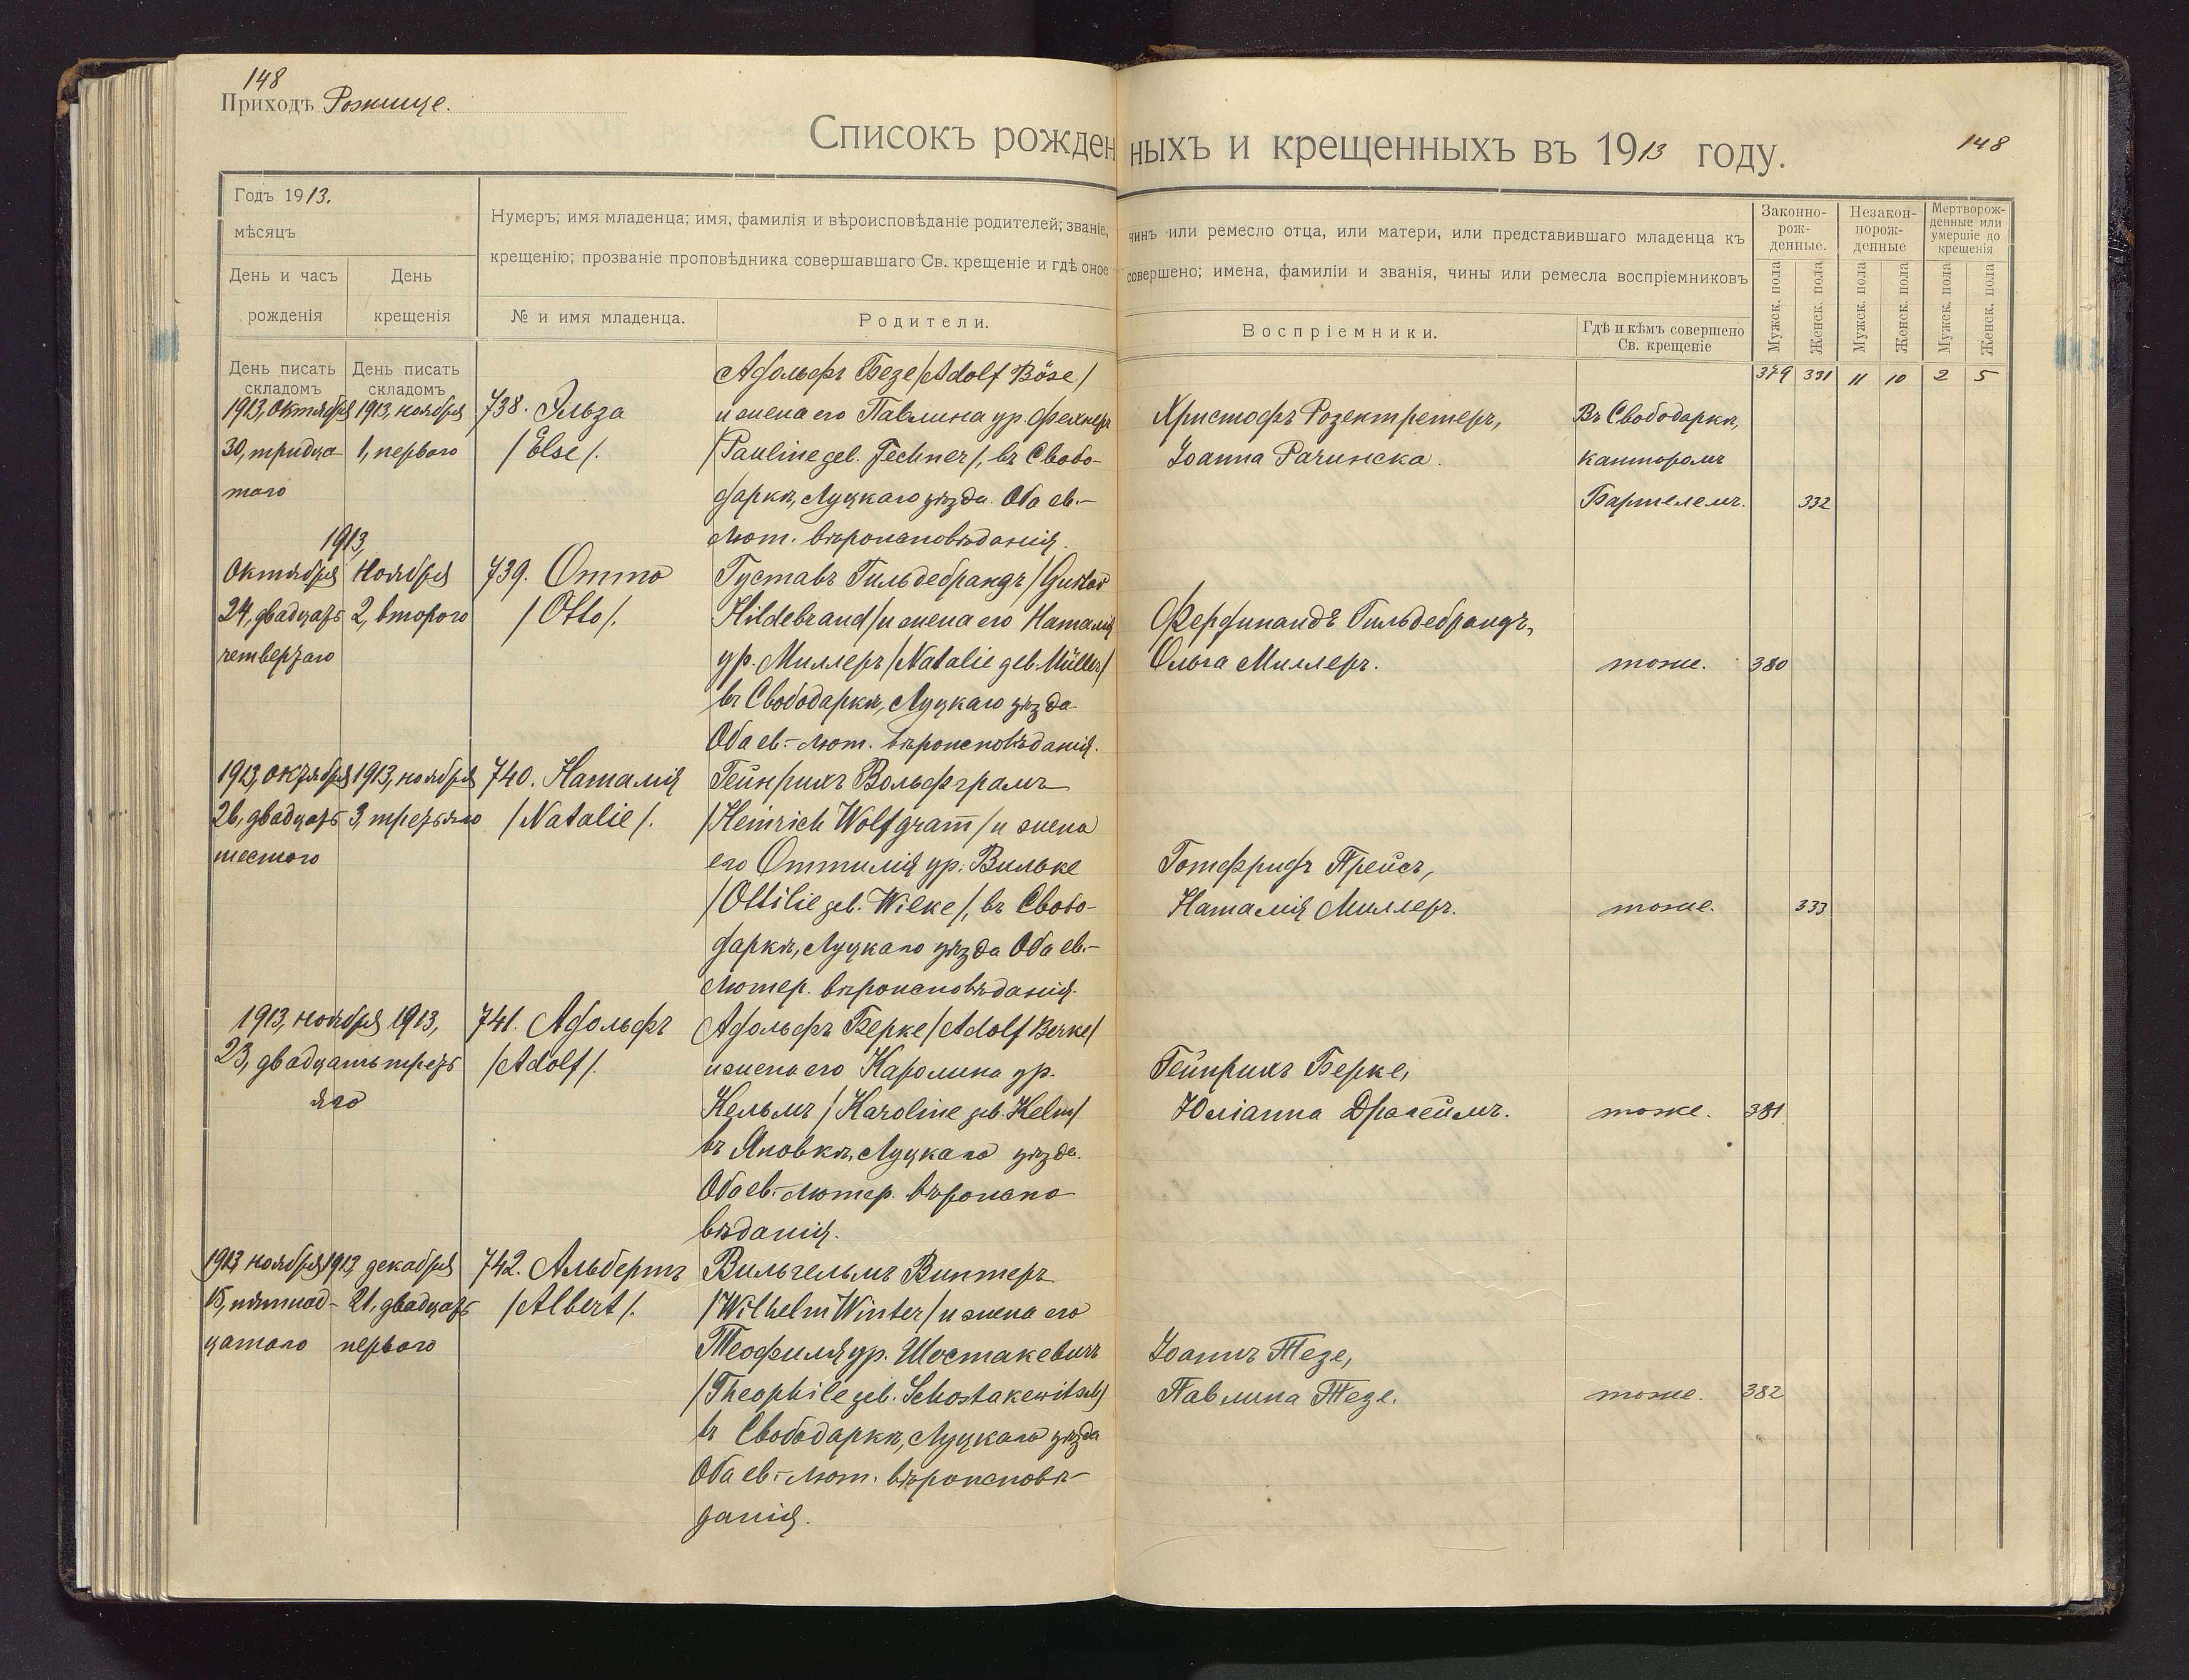 148
Приходъ Рожище.
Списокъ рожденныхъ и крещенныхъ въ 1913 году.
148
Годъ 1913.
мѣсяцъ
День и часъ рожденія
День крещенія
Нумеръ; имя младенца; имя, фамилія и вѣроисповѣданіе родителей; званіе, чинъ или ремесло отца, или матери, или представившаго младенца къ
крещенію; прозваніе проповѣдника совершавшаго Св. крещеніе и гдѣ оное совершено; имена, фамиліи и званія, чины или ремесла воспріемниковъ
№ и имя младенца.
Родители.
Воспріемники.
Гдѣ и кѣмъ совершено
Св. крещеніе
Законно-
рож-
денные.
Незакон-
норож-
денные
Мертворож-
денные или
умершіе до
крещенія
Мужск. пола
Женск. пола
Мужск. пола
Женск. пола
Мужск. пола
Женск. пола
День писать
складомъ
День писать
складомъ
379 331 11 10 2 5
1913, октября
30, тридца-
таго
1913, ноября
1, перваго
738. Эльза
/Else/.
Адольфъ Безе /Adolf Böse/
и жена его Павлина ур. Фехнеръ
/Pauline geb. Fechner/, въ Свобо-
даркѣ, Луцкаго уѣзда. Оба ев.-
лют. вѣроисповѣданія.
Христофъ Розентретеръ,
Іоанна Рачинска.
Въ Свободаркѣ,
канторомъ
Бартелемъ.
332
1913,
октября
24, двадцать
четвертаго
ноября
2, второго
739. Отто
/Otto/.
Густавъ Гильдебрандъ /Gustav
Hildebrand/ и жена его Наталія
ур. Миллеръ /Natalie geb. Müller/
въ Свободаркѣ, Луцкаго уѣзда.
Оба ев.-лют. вѣроисповѣданія.
Фердинандъ Гильдебрандъ,
Ольга Миллеръ.
тоже.
380
1913, октября
26, двадцать
шестого
1913, ноября
3, третьяго
740. Наталія
/Natalie/.
Гейнрихъ Вольфграмъ
/Heinrich Wolfgram̄/ и жена
его Оттилія ур. Вильке
/Ottilie geb. Wilke/, въ Свобо-
даркѣ, Луцкаго уѣзда Оба ев.-
лютер. вѣроисповѣданія.
Готфридъ Прейсъ,
Наталія Миллеръ.
тоже.
333
1913, ноября 1913,
23, двадцать треть
яго
741. Адольфъ
/Adolf/.
Адольфъ Берке /Adolf Berke/
и жена его Каролина ур.
Хельмъ /Karoline geb. Helm/
въ Яновкѣ, Луцкаго уѣзда.
Оба ев.-лютер. вѣроиспо
вѣданія.
Гейнрихъ Берке,
Юліанна Драгеймъ.
тоже.
381
1913 ноября
15, пятнад-
цатаго
1913 декабря
21, двадцать
перваго
742. Альбертъ
/Albert/.
Вильгельмъ Винтеръ
/Wilhelm Winter/ и жена его
Теофиля ур. Шостакевичъ
/Theophile geb. Schostakewitsch/
въ Свободаркѣ, Луцкаго уѣзда
Оба ев.-лют. вѣроисповѣ-
данія.
Іоаннъ Тезе,
Павлина Тезе.
тоже.
382